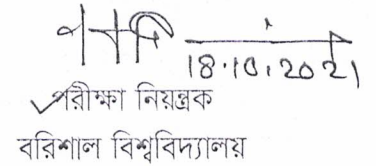 18.10.2021
পরীক্ষা নিয়ন্ত্রক
বরিশাল বিশ্ববিদ্যালয়